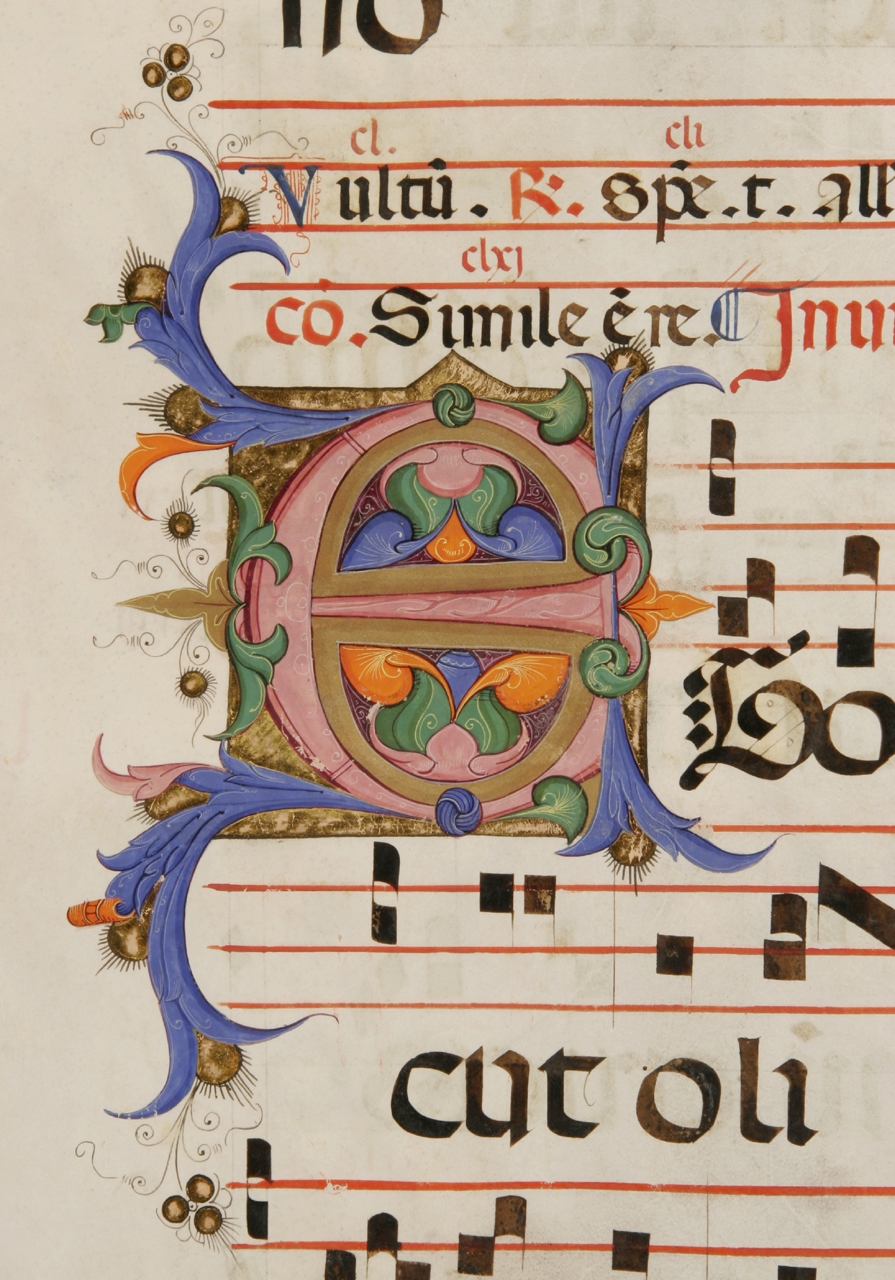 cl. cli
Vultū . R. sp̄e.t. all
clxj
cō. Simile ē re. ¶ Inun
E Go
cut oli